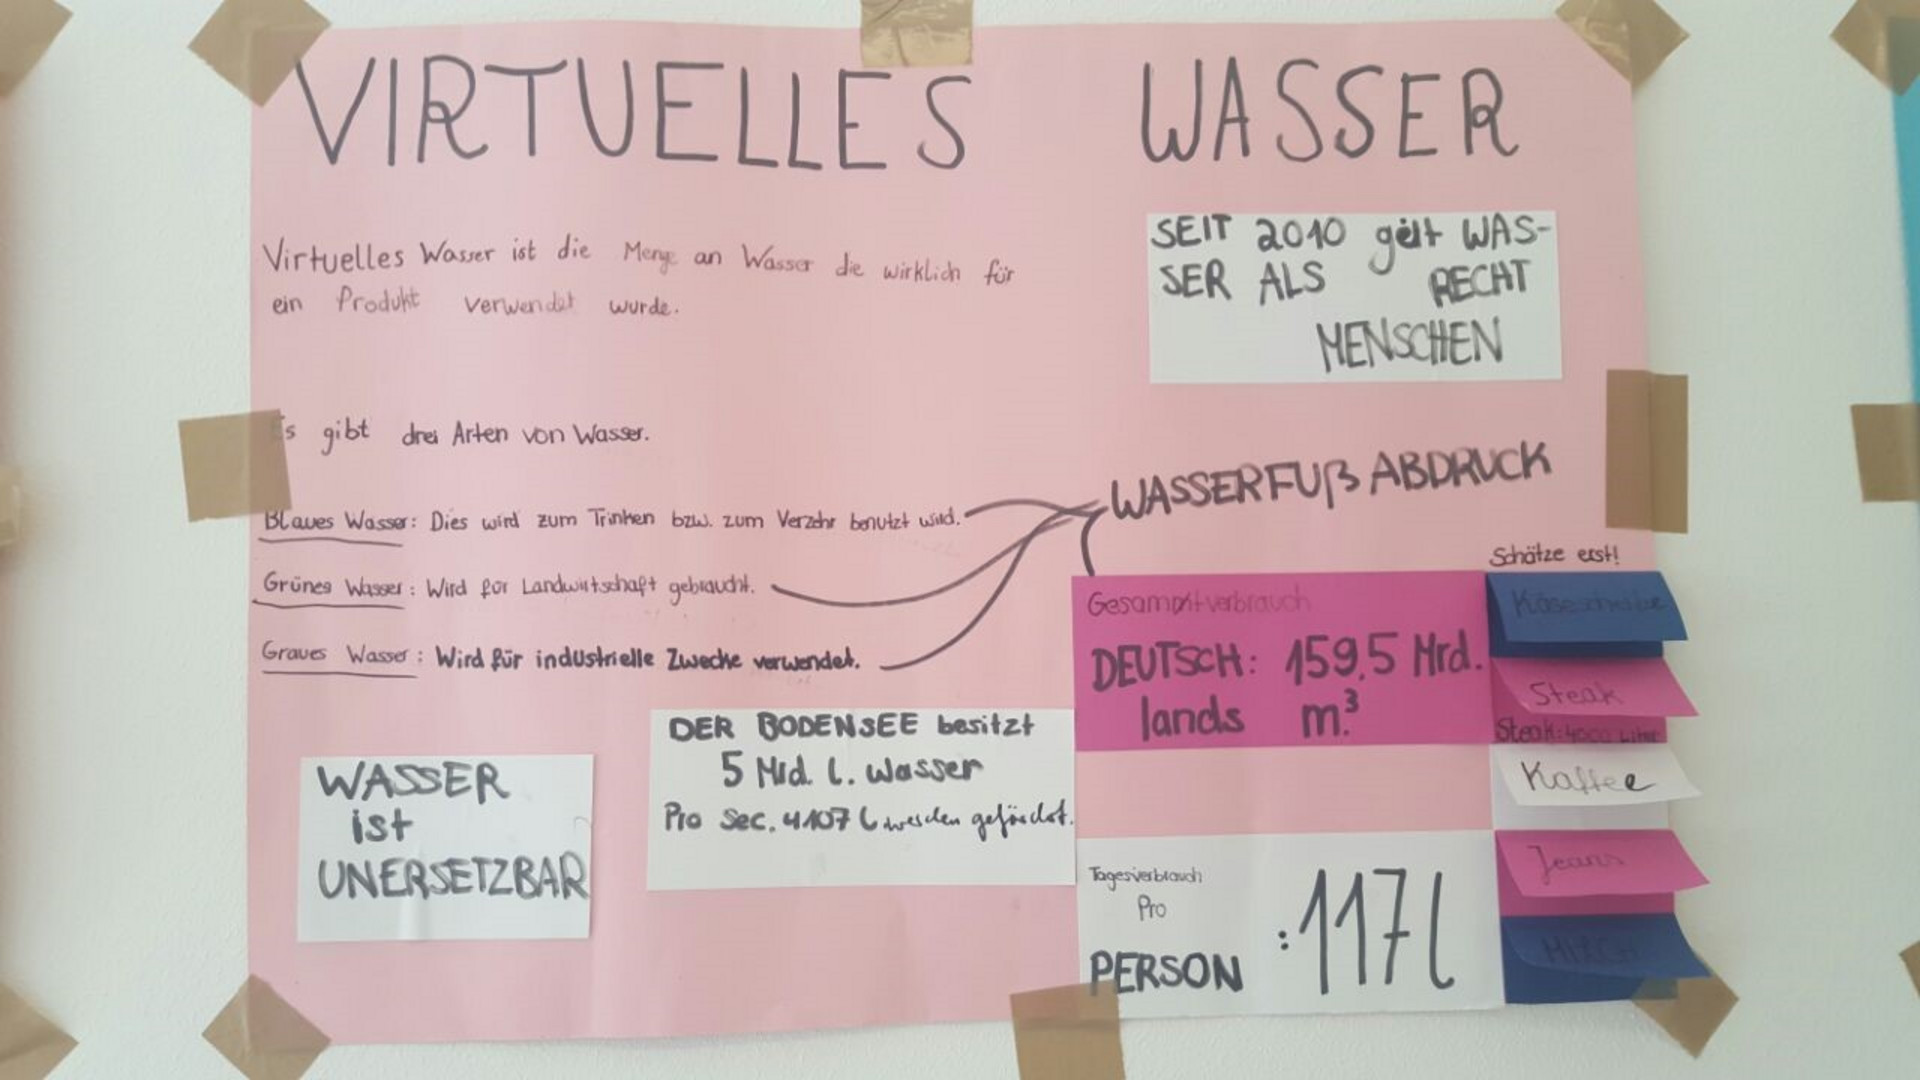 VIRTUELLES WASSER
Virtuelles Wasser ist die Menge an Wasser die wirklich für
ein Produkt verwendet wurde.
SEIT 2010 gilt WAS-
SER ALS RECHT
MENSCHEN
Es gibt drei Arten von Wasser.
Blaues Wasser: Dies wird zum Trinken bzw. zum Verzehr benutzt wird.
Grünes Wasser: Wird für Landwirtschaft gebraucht.
Graues Wasser: Wird für industrielle Zwecke verwendet.
WASSERFUßABDRUCK
WASSER
ist
UNERSETZBAR
DER BODENSEE besitzt
5 Mrd. l. Wasser
Pro Sec. 4107 l werden gefördert.
Gesamtverbrauch
DEUTSCH: 159,5 Mrd.
lands m³
Tagesverbrauch
Pro
PERSON :117l
Schätze erst!
Käsescheibe
Steak
Steak: 4000 Liter
Kaffee
Jeans